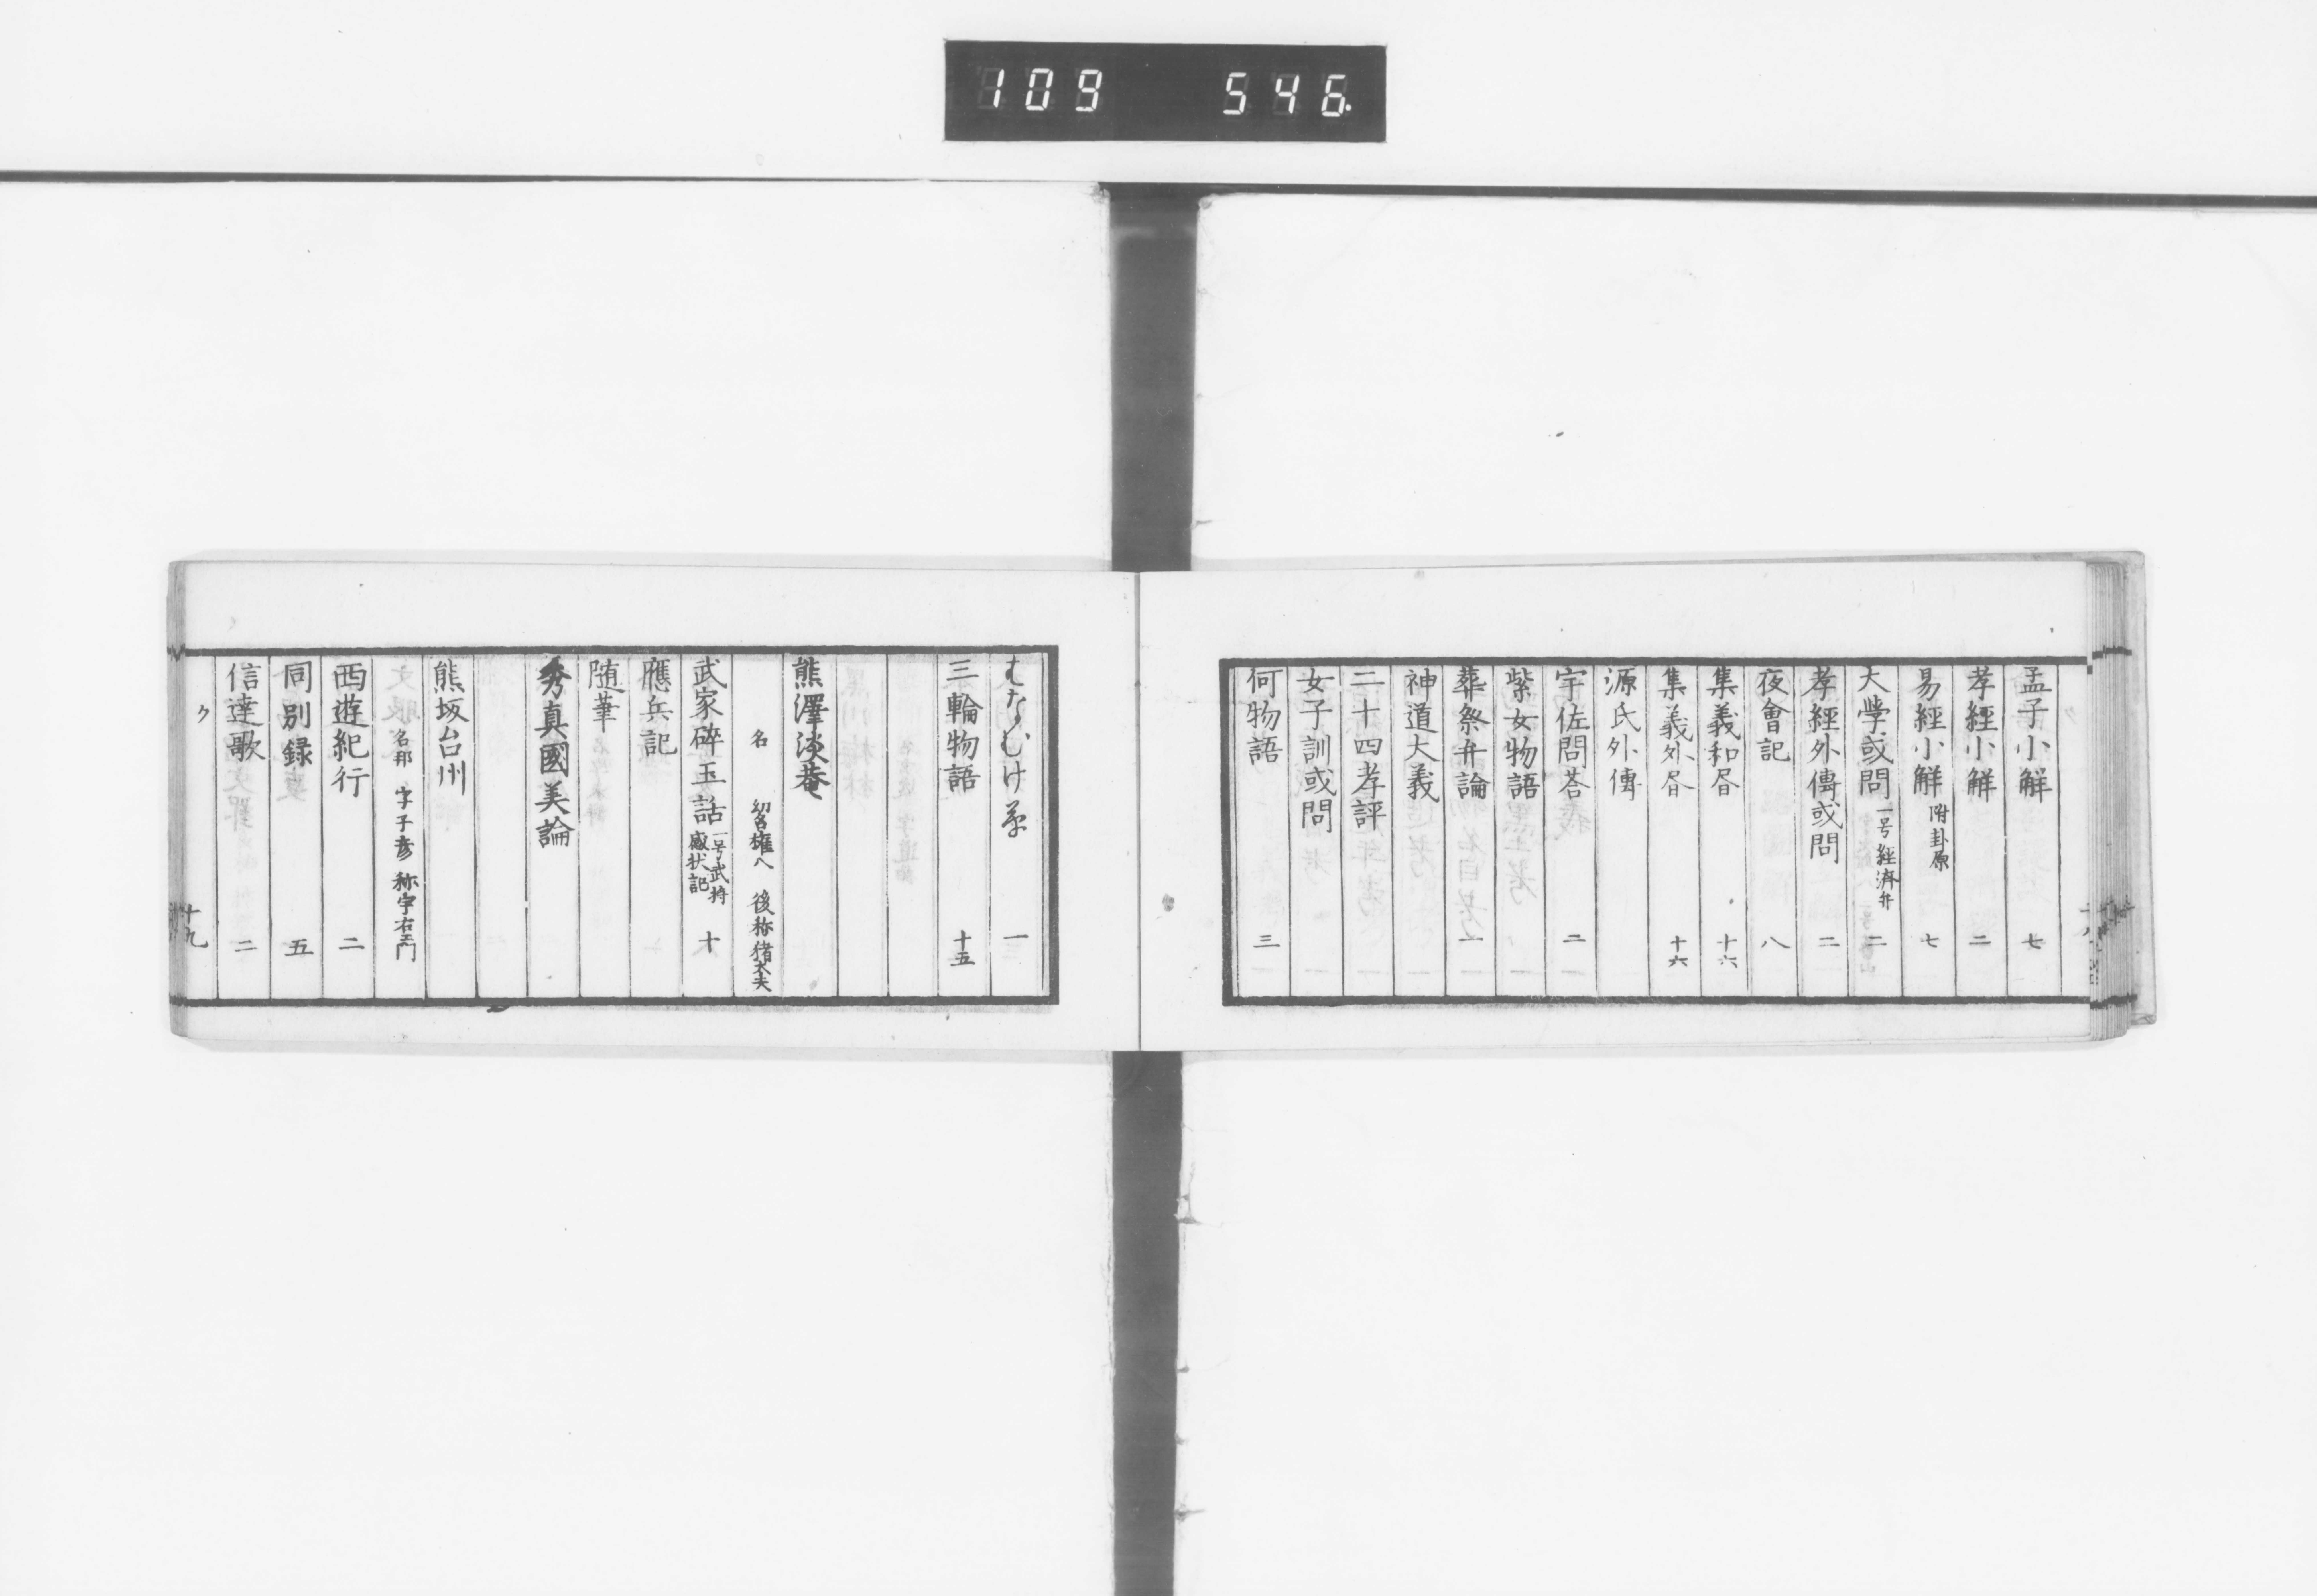 109 546
孟子小解 七
孝經小解 二
易經小解 附卦原 七
大學或問 一号經濟弁 二
孝經外傳或問 二
夜會記 八
集義和昏 十六
集義外昏 十六
源氏外傳
宇佐問荅 二
紫女物語
葬祭弁論 一
神道大義
二十四孝評
女子訓或問
何物語 三
一
三輪物語 十五
熊澤淡菴
名 権八 後称猪太夫
武家碎玉話 一号武将感状記 十
應兵記
随筆
秀真國美論
熊坂台州
名那 字子彦 称宇右エ門
西遊紀行 二
同別録 五
信達歌 二
ク 十九